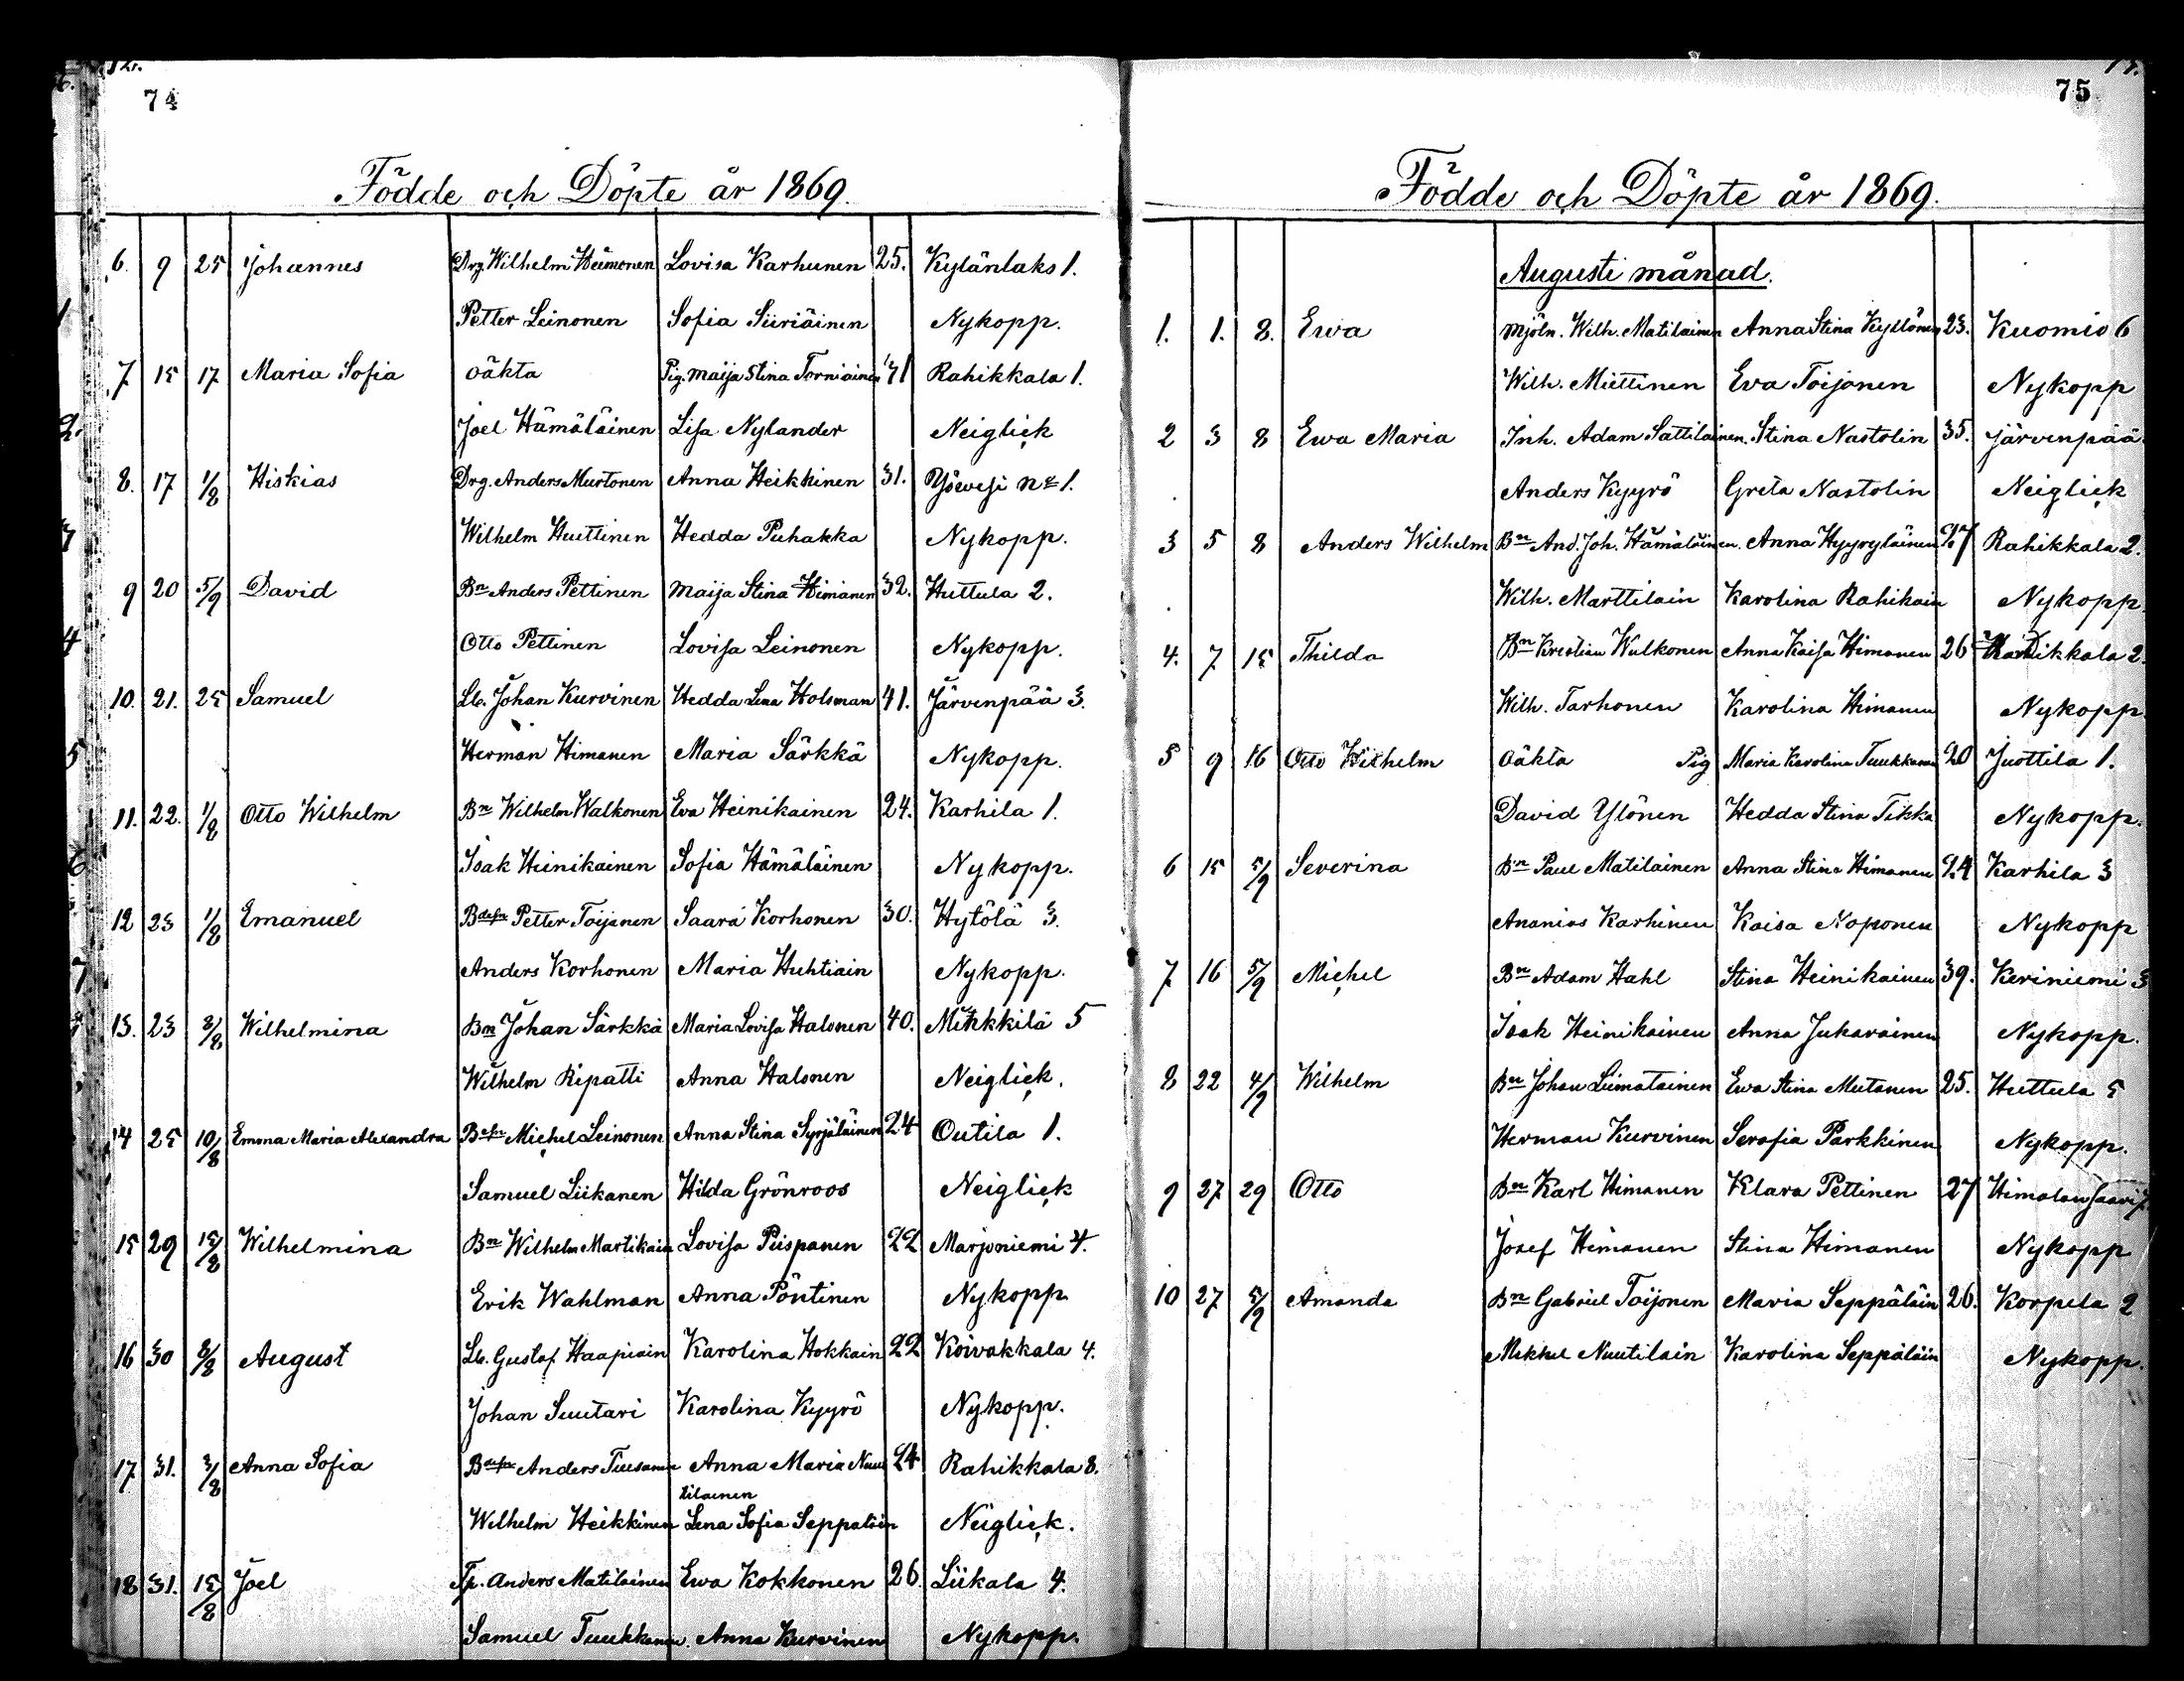 74
Födde och Döpte år 1869.
6. 9 25 Johannes Drg. Wilhelm Heimonen Lovisa Karhunen 25. Kylänlaks 1.
Petter Leinonen Sofia Siiriäinen Nykopp.
7 15 17 Maria Sofia oäkta Pig. Maija Stina Torniainen 41 Rahikkala 1.
Joel Hämäläinen Lisa Nylander Neiglick
8. 17 1/8 Hiskias Drg. Anders Murtonen Anna Heikkinen 31. No 1.
Wilhelm Huttinen Hedda Puhakka Nykopp.
9 20 5/9 David Bn Anders Pettinen Maija Stina Himanen 32. Huttula 2.
Otto Pettinen Lovisa Leinonen Nykopp.
10. 21. 25 Samuel Johan Kurvinen Hedda Lena Holsman 41. Järvenpää 3.
Herman Himanen Maria Särkkä Nykopp.
11. 22. 1/8 Otto Wilhelm Bn Wilhelm Walkonen Eva Heinikainen 24. Karhila 1.
Isak Heinikainen Sofia Hämäläinen Nykopp.
12 23 1/8 Emanuel Petter Toijanen Saara Korhonen 30. Hytölä 3.
Anders Korhonen Maria Huhtiain Nykopp.
13. 23 3/8 Wilhelmina Bn Johan Särkkä Maria Lovisa Halonen 40. Mikkilä 5
Wilhelm Ripatti Anna Halonen Neiglick.
14 25 10/8 Emma Maria Alexandra Michel Leinonen Anna Stina Syrjäläinen 24 Outila 1.
Samuel Liikanen Hilda Grönroos Neiglick
15 29 15/8 Wilhelmina Bn Wilhelm Martikain Lovisa Piispanen 22 Marjoniemi 4.
Erik Wahlman Anna Pöntinen Nykopp
16 30 8/8 August Gustaf Haapiain Karolina Hokkain 22 Koivakkala 4.
Johan Suutari Karolina Kyyrö Nykopp.
17. 31. 3/8 Anna Sofia Anders Tuusanen Anna Maria Nuu 24 Rahikkala 8.
tilainen
Wilhelm Heikkinen Lena Sofia Seppäläin Neiglick.
18 31. 15/8 Joel Anders Matilainen Ewa Kokkonen 26. Liikala 4.
Samuel Tuukkanen. Anna Kurvinen Nykopp.
75
Födde och Döpte år 1869.
Augusti månad.
1. 1. 8. Ewa Mjöln. Wilh. Matilainen Anna Stina Kyllönen 23. Kuomio 6
Wilh. Miettinen Eva Toijonen Nykopp
2 3 8 Ewa Maria Inh. Adam Sattilainen. Stina Nastolin 35. Järvenpää
Anders Kyyrö Greta Nastolin Neiglick
3 5 8 Anders Wilhelm Bn And. Joh. Hämäläinen. Anna Hyyryläinen 27 Rahikkala 2.
Wilh. Marttilain Karolina Rahikain Nykopp.
4. 7 15 Thilda Bn Krestian Wulkonen Anna Kaisa Himanen 26 2.
Wilh. Tarhonen Karolina Himanen Nykopp.
5 9 16 Otto Wilhelm oäkta Pig Maria Karolina Tuukkanen 20 Juottila 1.
David Ylönen Hedda Stina Tikka Nykopp.
6 15 5/9 Severina Bn Paul Matilainen Anna Stina Himanen 24 Karhila 3
Ananias Karhinen Kaisa Noponen Nykopp
7 16 5/9 Michel Bn Adam Hahl Stina Heinikainen 39. Keriniemi 3
Isak Heinikainen Anna Jukarainen Nykopp.
8 22 4/9 Wilhelm Bn Johan Liimatainen Ewa Stina Mutanen 25. Huttula 5
Herman Kurvinen Serafia Parkkinen Nykopp.
9 27 29 Otto Bn Karl Himanen Klara Pettinen 27 Himalansaari 7.
Josef Himanen Stina Himanen Nykopp
10 27 5/9 Amanda Bn Gabriel Toijonen Maria Seppäläin 26. Korpela 2
Mikkel Nuutilain Karolina Seppäläin Nykopp.